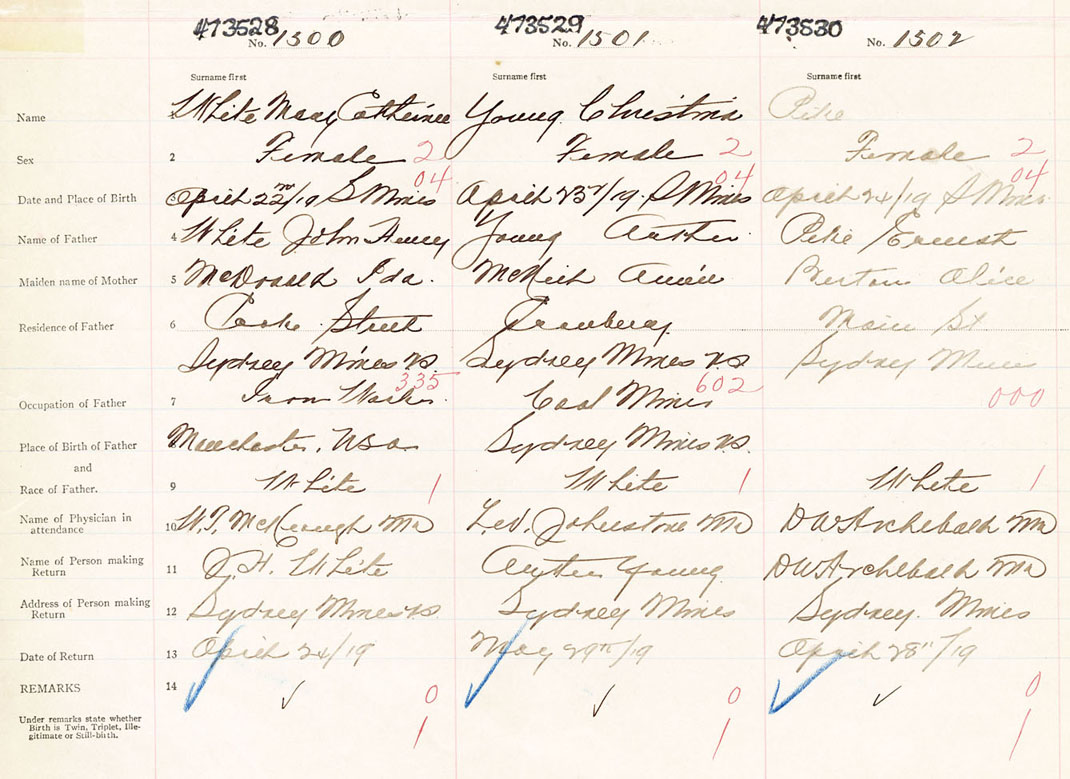 473528 473529 473530
No. 1500 No. 1501 No. 1502
Surname first Surname first Surname first
Name 1 White Mary Catherine Young Christina Pike
Sex 2 Female 2 Female 2 Female 2
04 04 04
Date and Place of Birth 3 April 22nd/19 S Mines April 23rd/19. S Mines April 24/19 S Mines
Name of Father 4 White John Henry Young Arthur. Pike Ernest
Maiden name of Mother 5 McDonald Ida. Annie Alice
Residence of Father 6 Street Cranberry. Main St
Sydney Mines NS. Sydney Mines NS Sydney Mines
335 602 000
Occupation of Father 7 Iron Worker. Coal Miner
Place of Birth of Father 8 Manchester, USA Sydney Mines NS.
and
Race of Father. 9 White 1 White 1 White 1
Name of Physician in
attendance 10 MD Johnstone MD DW Archibald MD
Name of Person making
Return 11 J. H. White Arthur Young DW Archibald MD
Address of Person making
Return 12 Sydney Mines NS. Sydney Mines Sydney. Mines
Date of Return 13 April 24/19 May 29th/19 April 28th/19
REMARKS 14 ✓ 0 ✓ 0 ✓ 0
Under remarks state whether
Birth is Twin, Triplet, Ille-
gitimate or Still-birth. 1 1 1